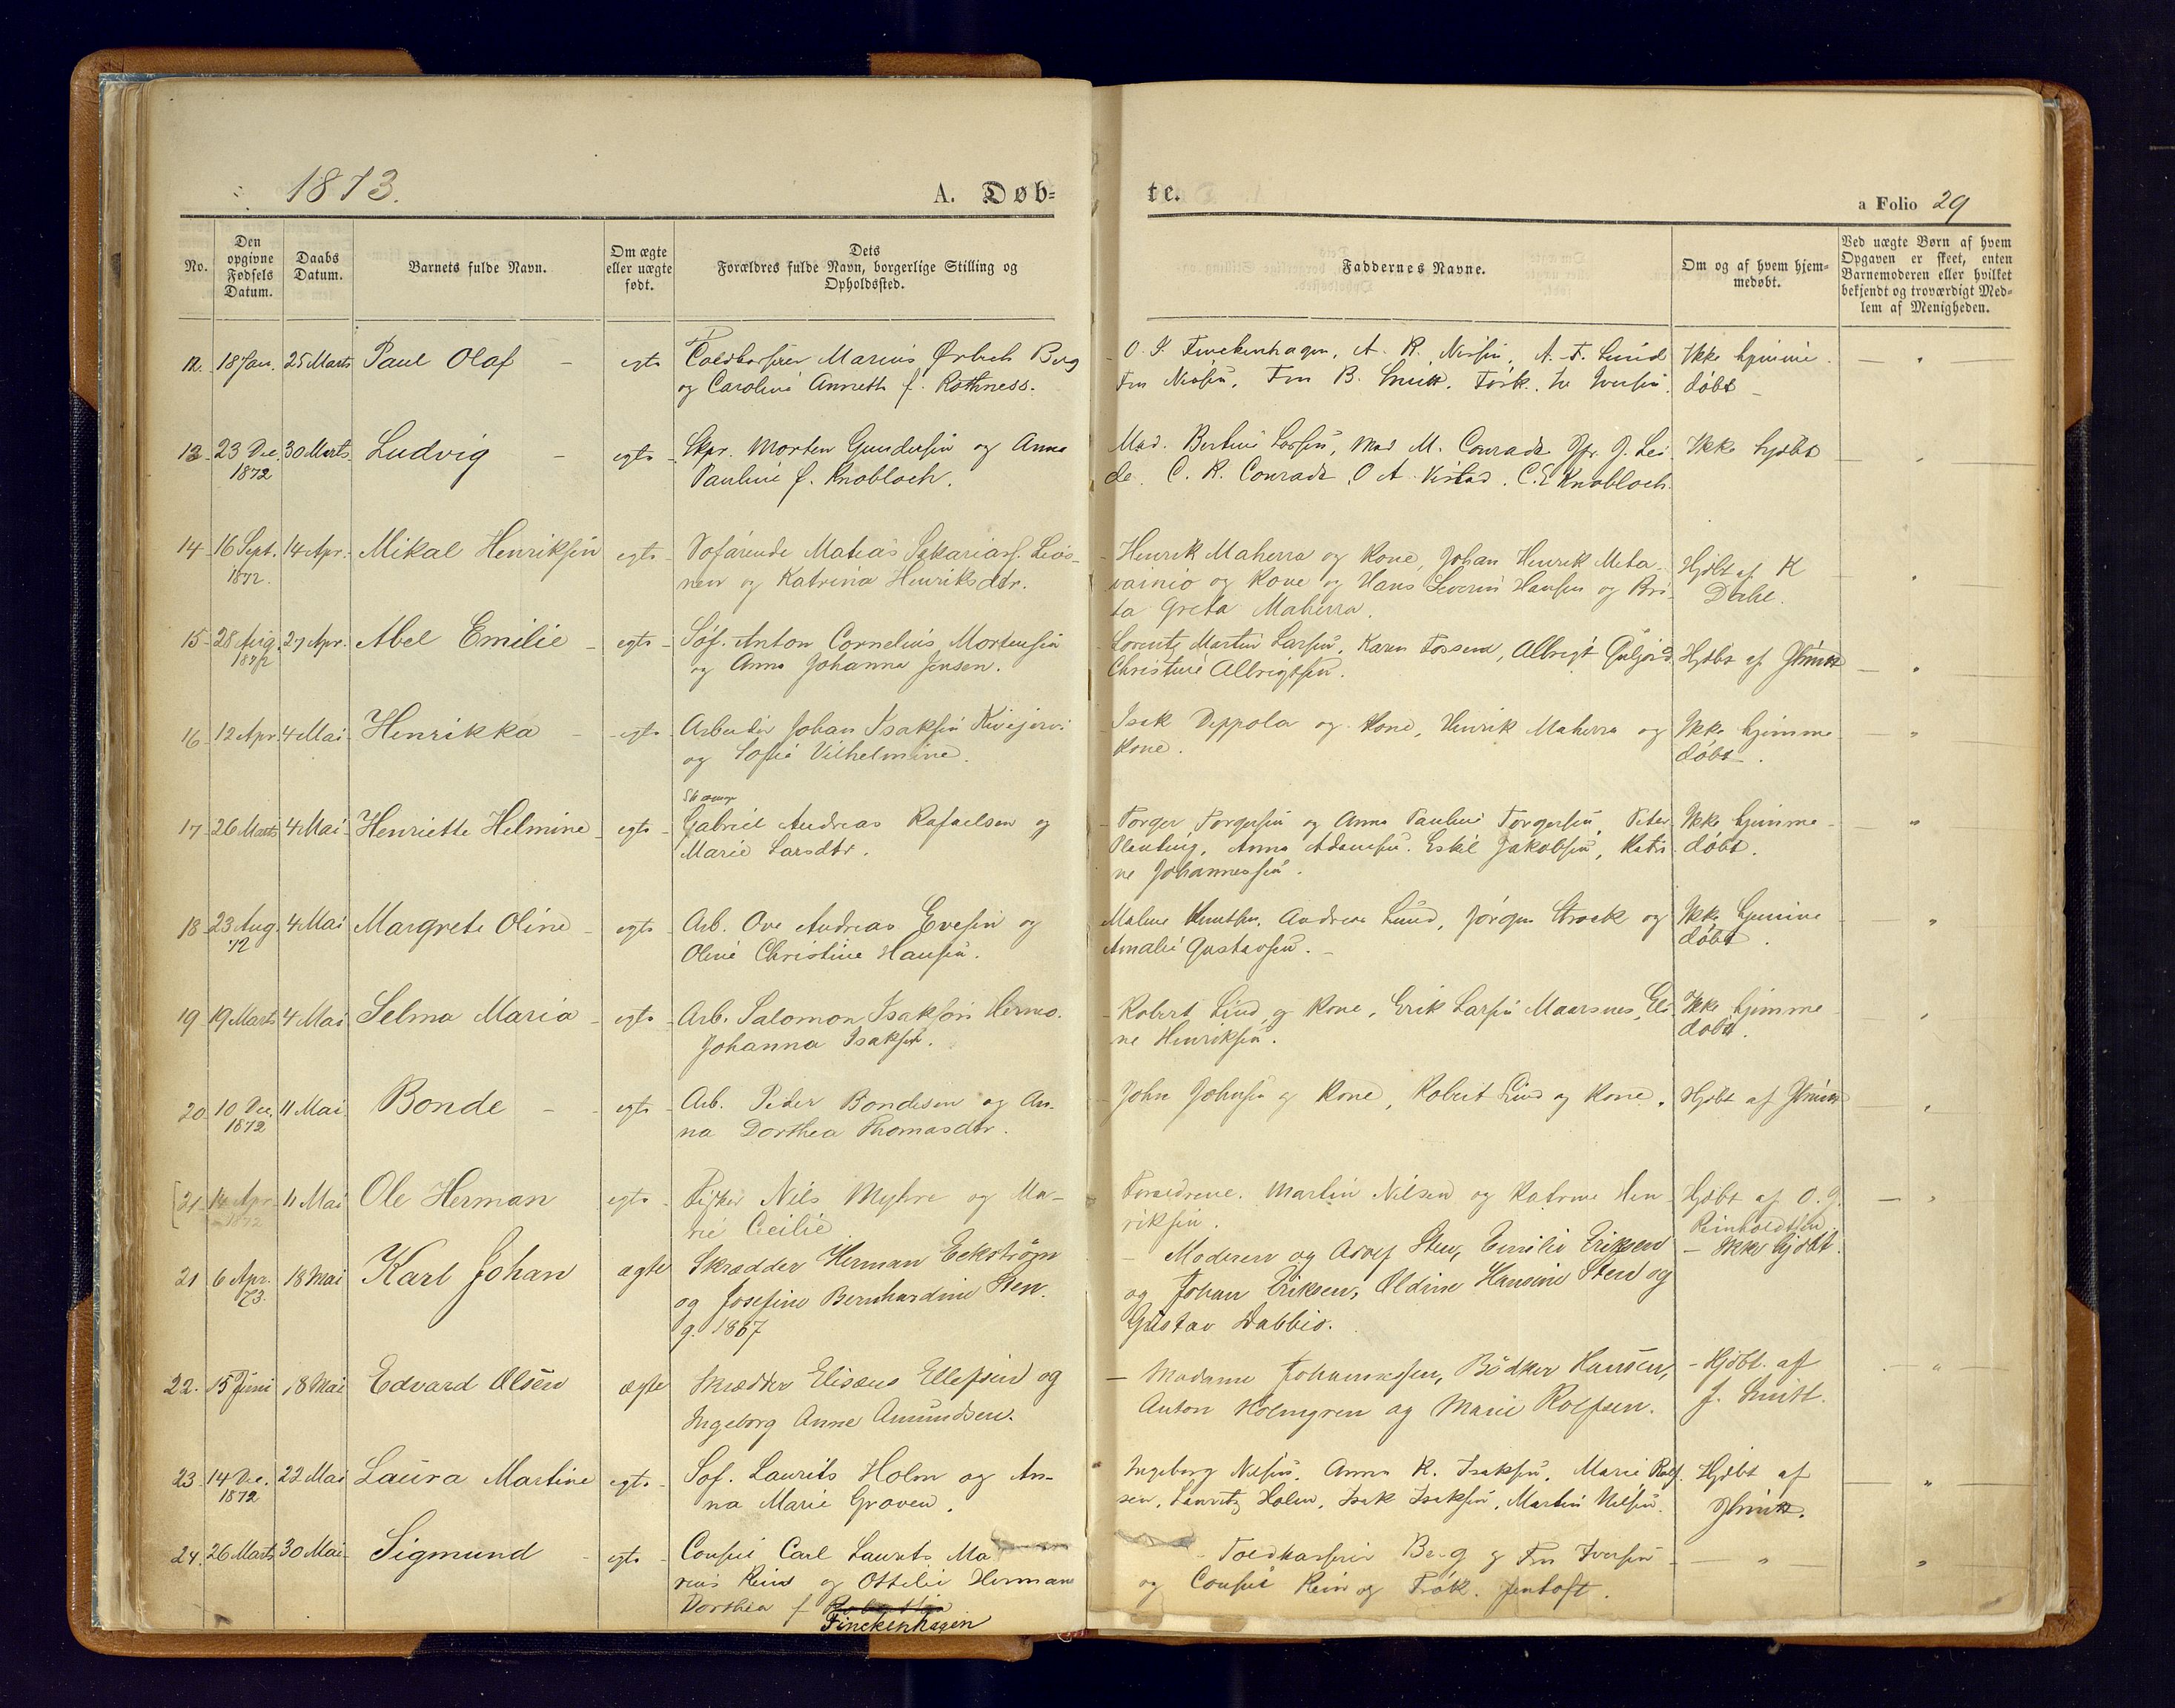 1873.
A. Døb=
te.
a Folio 29
No.
Den opgivne Fødsels Datum.
Daabs Datum.
Barnets fulde Navn.
Om ægte eller uægte født.
Dets Forældres fulde Navn, borgerlige Stilling og Opholdssted.
Faddernes Navne.
Om og af hvem hjemmedøbt.
Ved uægte Børn af hvem Opgaven er skeet, enten Barnemoderen eller hvilket bekjendt og troværdigt Medlem af Menigheden.
12. 18 Jan. 25 Marts Paul Olaf - egte Toldkasserer Marius Ørbech Berg
og Caroline Annette f. Rothness.
O. J. Finckenhagen, A. R. Nissen, A. F. Lund
Fru Nissen, Fru B. Smitt, Frøk. Iversen.
Ikke hjemme
døbt -
13 23 Dec. 30 Marts Ludvig - egte Skpr. Morten Gundersen og Anna
1872 Pauline f. Knobloch.
Mad. Bertine Larsen, Mad M. Conradt J. Lei
de. C. R. Conradt, O A Vistad. C. E Knobloch
Ikke hjdbt
14 16 Sept. 14 Apr. Mikal Henriksen egte Sofarende Matias Sakarias.
1872. nen og Katrina Henriksdtr.
Henrik Maherra og Kone, Johan Henrik Meta
vainio og Kone og Hans Severin Hansen og Bri
ta Greta Maherra.
Hjdbt af K
Dahl.
15 28 Aug. 27 Apr. Abel Emilie - egte Søf. Anton Cornelius Mortensen
1872 og Anna Johanna Jensen.
Lorentz Martin Larsen, Karen Fossen, Albrigt
Christine Albrigtsen.
Hjdbt af JSmitt
16 12 Apr 4 Mai Henrikka - egte Arbeider Johan Isaksen Kivijervi
og Sofie Vilhelmine.
Isak Deppola og Kone, Henrik Maherra og
Kone.
Ikke hjemme
døbt.
17 26 Marts 4 Mai Henriette Helmine egte Gabriel Andreas Rafaelsen og
Marie Larsdtr.
Torger Torgersen og Anna Pauline Torgersen, Peter
Planting, Anna Adamsen. Eskil Jakobsen, Katri
ne Johannessen.
Ikke hjemme
døbt.
18 23 Aug 4 Mai Margrete Oline - egte Arb. Ove Andreas Evesen og
72 Oline Christine Hansen.
Malene Knutsen, Andreas Lund, Jørgen Strock og
Amalie Gustavsen. -
Ikke hjemme
døbt.
19 19 Marts 4 Mai Selma Maria - egte Arb. Salomon Isaksen Hermo.
Johanna Isaksen.
Robert Lind og Kone, Erik Larsen Maarsnes, Eli
ne Henriksen.
Ikke hjemme
døbt.
20 10 Dec. 11 Mai Bonde - egte Arb. Peder Bondesen og An-
1872 na Dorthea Thomasdtr.
John Johnsen og Kone, Robert Lind og Kone.
Hjdbt af JSmitt
[21 14 Apr 11 Mai Ole Herman egte Fisker Nils Myhre og Ma-
1872 rie Cecilie
Forældrene. Martin Nilsen og Katrine Hen-
riksen.
Hjdbt af O. J.
Reinholdtsen
21 6 Apr. 18 Mai Karl Johan ægte Skrædder Herman Eckstrøm
73. og Josefine Bernhardine Sten.
g. 1867
- Moderen og Adolf Sten, Emilie Eriksen
og Johan Eriksen, Oldine Hansine Sten og
Gustav Wabbio.
- Ikke hjdbt.
22. 15 Juni 18 Mai Edvard Olsen ægte Skrædder Elisæus Ellefsen og
Ingeborg Anne Amundsen.
- Madame Johannessen, Bødker Hansen,
Anton Holmgren og Marie Rolfsen.
- Hjdbt. af
J. Smitt.
23 14 Dec. 22 Mai Laura Martine egte Søf. Laurits Holm og An-
1872 na Marie Groven.
Ingeborg Nilsen, Anna K. Isaksen, Marie Rolf
sen, Lauritz Holm, Isak Isaksen, Martin Nilsen.
Hjdbt af
JSmitt.
24. 26 Marts 30 Mai Sigmund - egte Consul Carl Laurits Ma
rius Rein og Ottilie Herman
Dorthea f
Finckenhagen
Toldkasserer Berg og Fru Iversen
og Consul Rein og Frøk. Jentoft.